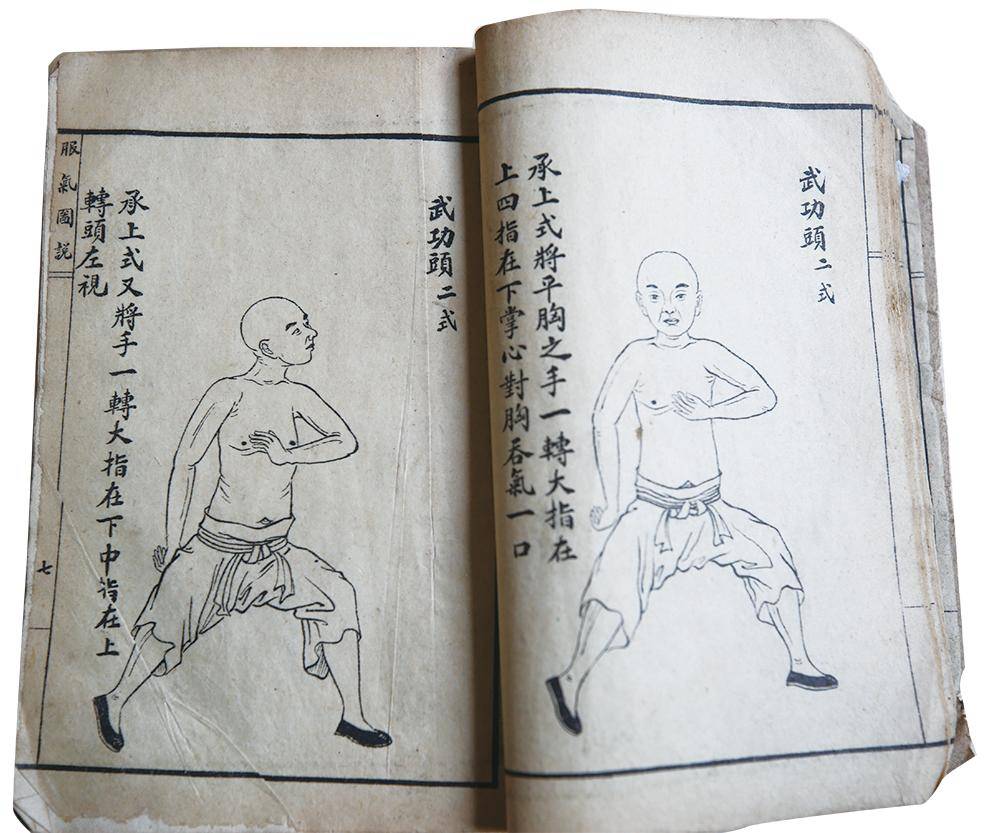 武功頭二式
承上式將平胸之手一轉大指在
上四指在下掌心對胸吞氣一口
武功頭二式
承上式又將手一轉大指在下中指在上
轉頭左視
服氣圖説
七